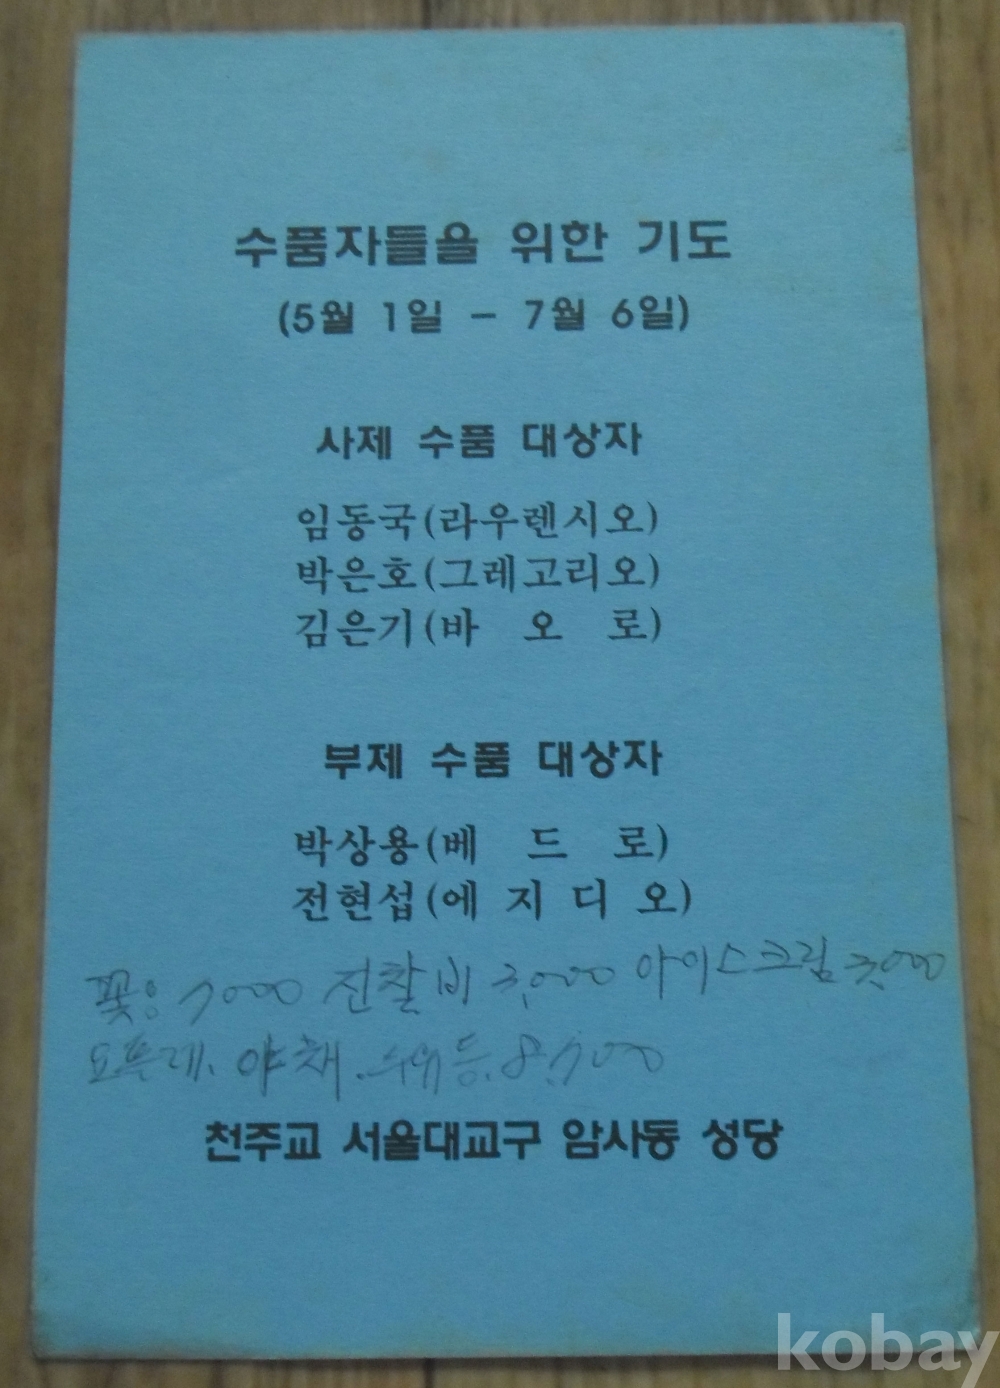 수품자들을 위한 기도
(5월 1일 - 7월 6일)
사제 수품 대상자
임동국(라우렌시오)
박은호(그레고리오)
김은기(바 오 로)
부제 수품 대상자
박상용(베 드 로)
전현섭(에 지 디 오)
꽃: 7000 진찰비 3,000 아이스크림 3,000
야채. 우유등. 8,700
천주교 서울대교구 암사동 성당
kobay